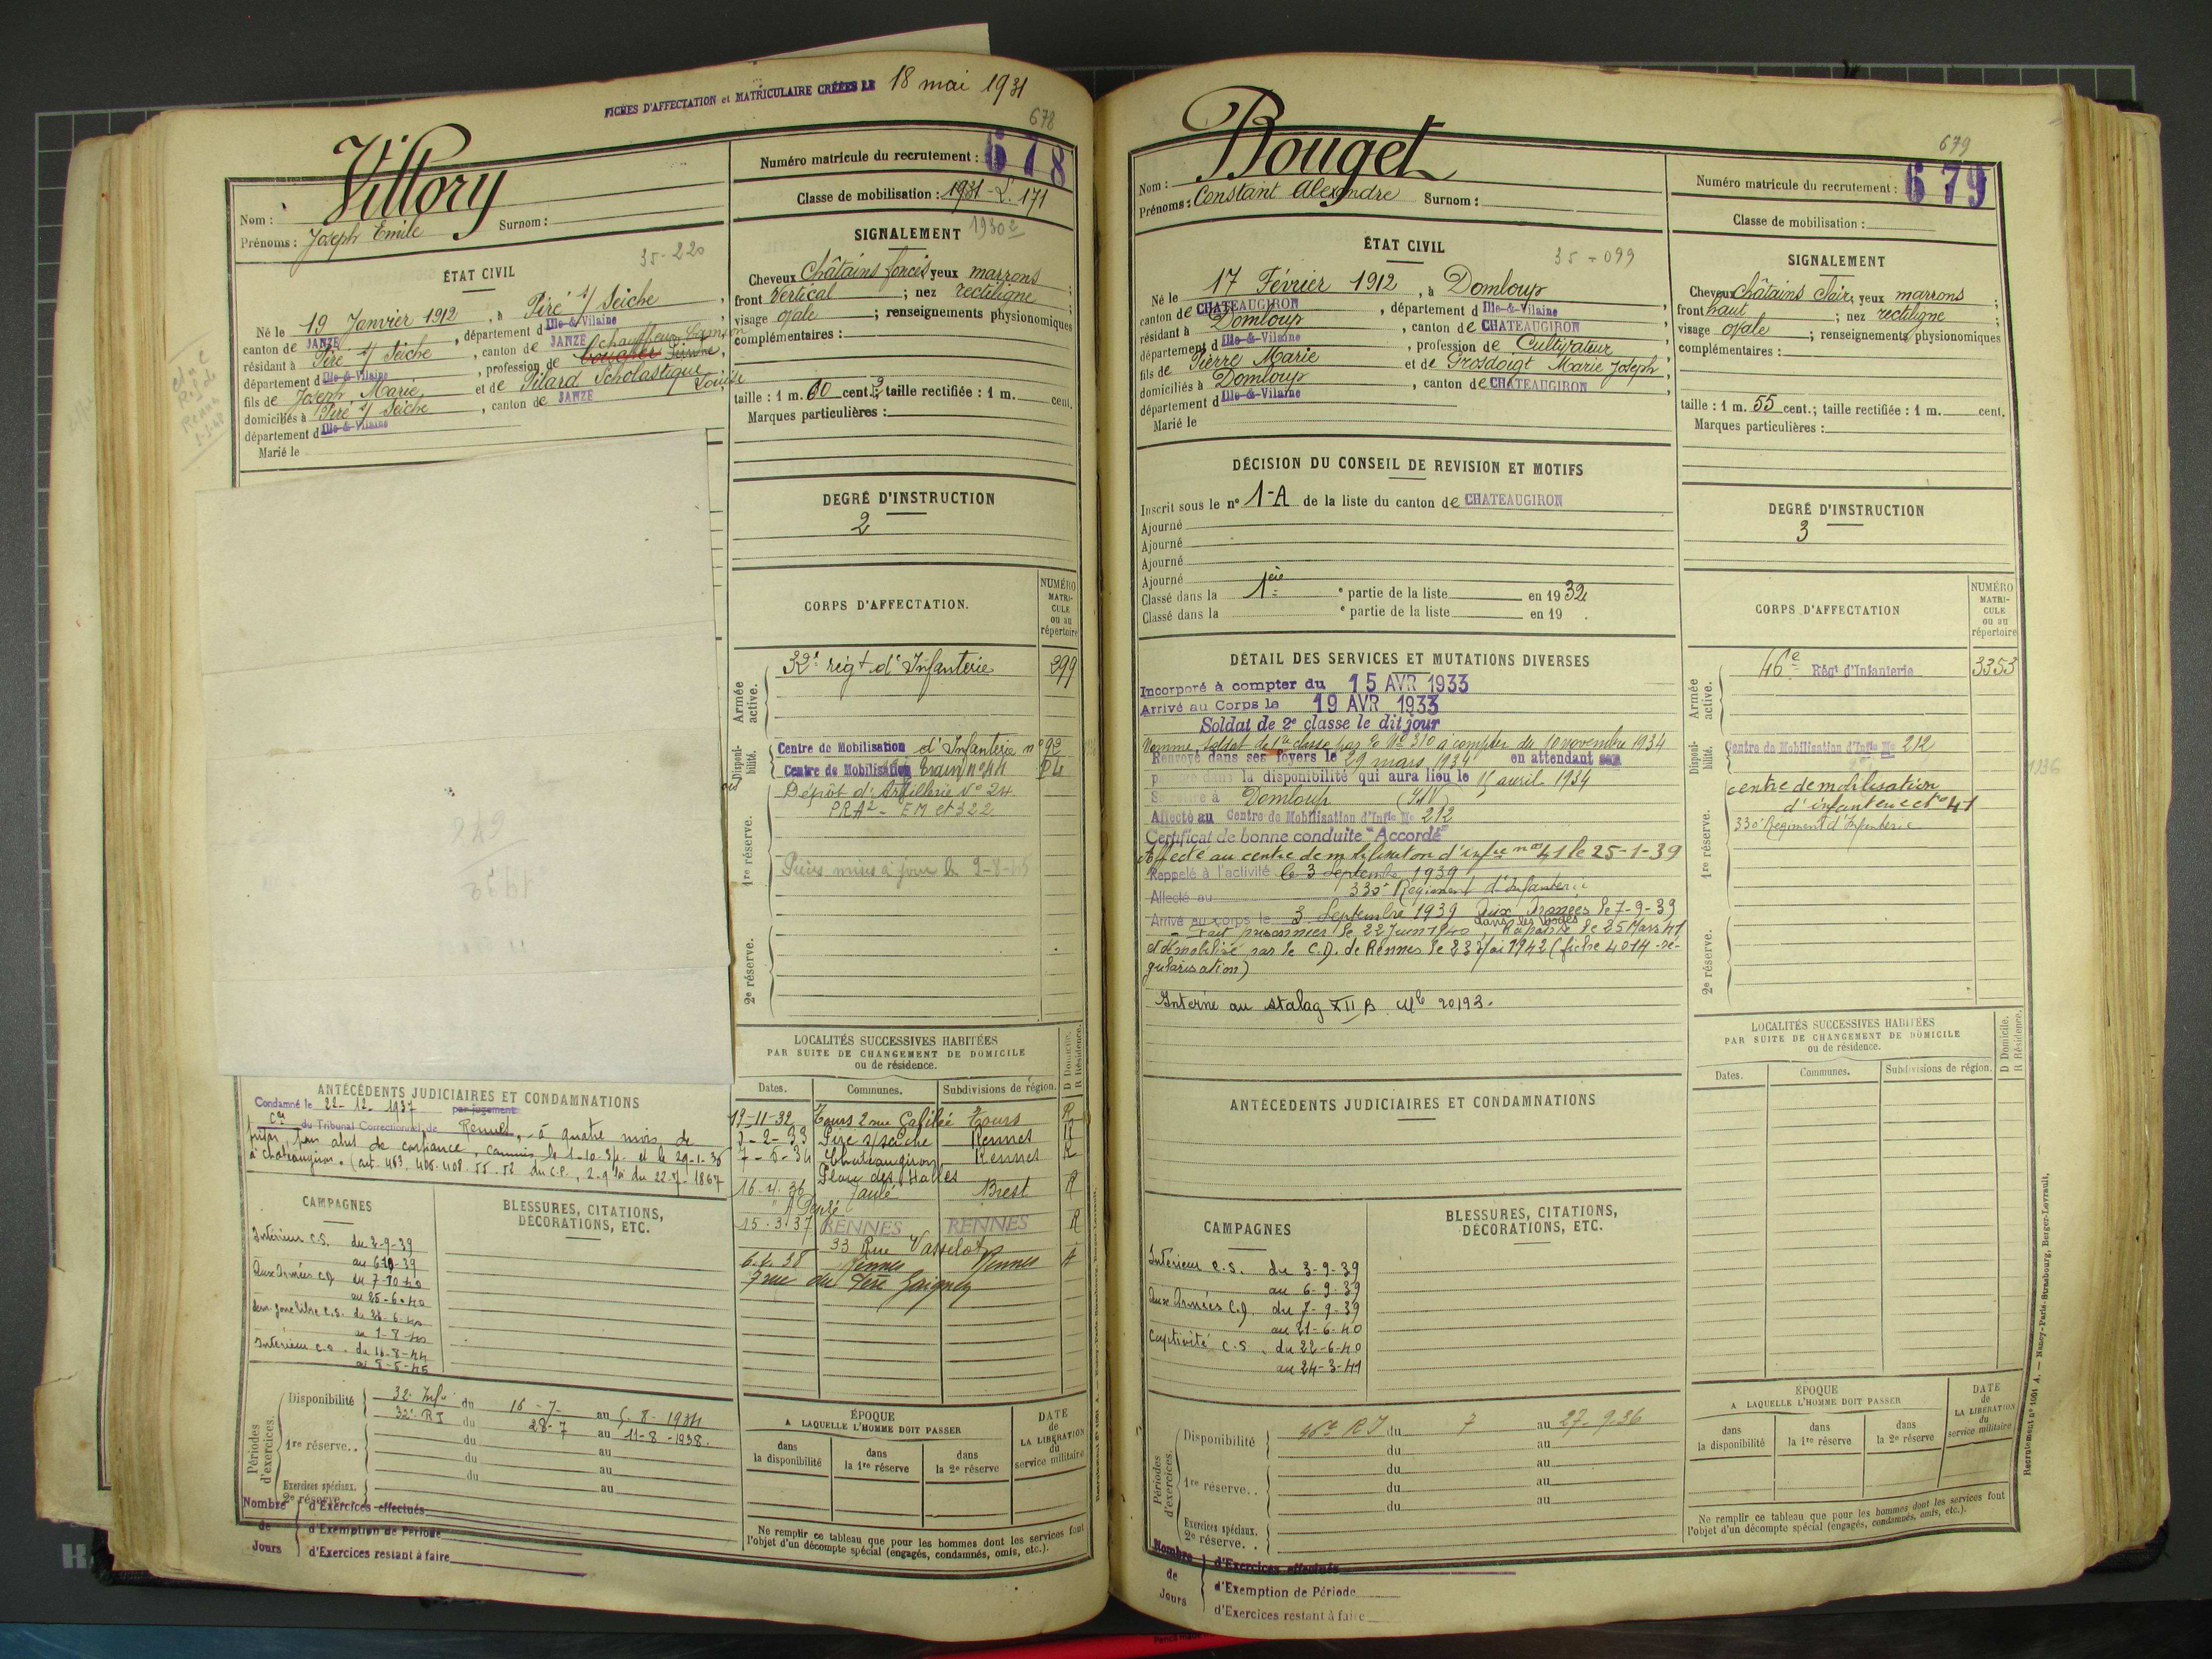 FICHES D'AFFECTATION et MATRICULAIRE CRÉÉES LE 18 mai 1931
678
Nom : Villory
Prénoms : Joseph Emile Surnom :
Numéro matricule du recrutement : 678
Classe de mobilisation : 1931 - L. 171
35-220
ÉTAT CIVIL
Né le 19 Janvier 1912, à Piré s/ Seiche,
canton de JANZE, département d Ille-&-Vilaine
résidant à Piré s/ Seiche, canton de JANZE
département d Ille-&-Vilaine, profession de chauffeur
fils de Joseph Marie et de Pilard Scholastique Louise
domiciliés à Piré s/ Seiche, canton de JANZE
département d Ille-&-Vilaine
Marié le
SIGNALEMENT
Cheveux Châtains foncés yeux marrons ;
front Vertical ; nez rectiligne ;
visage ovale ; renseignements physionomiques
complémentaires :
taille : 1 m. 60 cent. ; taille rectifiée : 1 m. cent.
Marques particulières :
DEGRÉ D'INSTRUCTION
2
CORPS D'AFFECTATION.
NUMÉRO MATRICULE ou au répertoire
Armée active.
32e régt d'Infanterie 299
Disponibilité.
Centre de Mobilisation d'Infanterie n° 92
Centre de Mobilisation Train n° 44
Dépôt d'Artillerie N° 24
1re réserve.
2e réserve.
ANTÉCÉDENTS JUDICIAIRES ET CONDAMNATIONS
Condamné le 22-12-1937 par jugement
du Tribunal Correctionnel de Rennes, à quatre mois de
prison, pour abus de confiance, commis le 1-10-34 et le 29-1-36
à Chateaugiron. (art. 463, 406, 408, 55, 52 du C.P., 2-9 loi du 22-7-1867
LOCALITÉS SUCCESSIVES HABITÉES
PAR SUITE DE CHANGEMENT DE DOMICILE
ou de résidence.
D Domicile.
R Résidence.
Dates. Communes. Subdivisions de région.
Tours Tours R
7-2-33 Piré s/seiche Rennes R
7-5-34 Chateaugiron Rennes R
Place des Halles
Brest R
15-3-37 RENNES RENNES R
33 Rue Vasselot
Rennes Rennes
CAMPAGNES
Intérieur C.S. du 2-9-39
Aux Armées C.D.
au 25-6-40
au 1-8-40
Intérieur C.S.
BLESSURES, CITATIONS,
DÉCORATIONS, ETC.
Périodes d'exercices.
Disponibilité du 16-7- au 5-8-1934
32e RI du 28-7 au 11-8-1938.
1re réserve.. du au
du au
du au
Exercices spéciaux.
2e réserve.
ÉPOQUE
A LAQUELLE L'HOMME DOIT PASSER
dans la disponibilité
dans la 1re réserve
dans la 2e réserve
DATE de LA LIBÉRATION du service militaire
Ne remplir ce tableau que pour les hommes dont les services font
l'objet d'un décompte spécial (engagés, condamnés, omis, etc.).
Nombre de Jours
d'Exercices effectués
d'Exemption de Période
d'Exercices restant à faire
679
Nom : Bouget
Prénoms : Constant Alexandre Surnom :
Numéro matricule du recrutement : 679
Classe de mobilisation :
35-099
ÉTAT CIVIL
Né le 17 Février 1912, à Domloup
canton de CHATEAUGIRON, département d Ille-&-Vilaine
résidant à Domloup, canton de CHATEAUGIRON
département d Ille-&-Vilaine, profession de Cultivateur
fils de Pierre Marie et de Grosdoigt Marie Joseph
domiciliés à Domloup, canton de CHATEAUGIRON
département d Ille-&-Vilaine
Marié le
SIGNALEMENT
Cheveux Châtains clairs yeux marrons ;
front haut ; nez rectiligne ;
visage ovale ; renseignements physionomiques
complémentaires :
taille : 1 m. 55 cent. ; taille rectifiée : 1 m. cent.
Marques particulières :
DÉCISION DU CONSEIL DE REVISION ET MOTIFS
Inscrit sous le n° 1-A de la liste du canton de CHATEAUGIRON
Ajourné
Ajourné
Ajourné
Ajourné
Classé dans la 1ère e partie de la liste en 1932
Classé dans la e partie de la liste en 19 .
DEGRÉ D'INSTRUCTION
3
DÉTAIL DES SERVICES ET MUTATIONS DIVERSES
Incorporé à compter du 15 AVR 1933
Arrivé au Corps le 19 AVR 1933
Soldat de 2e classe le dit jour
Nommé soldat de 1re classe à compter du 10 novembre 1934
Renvoyé dans ses foyers le 29 mars 1934 en attendant son
passage dans la disponibilité qui aura lieu le 15 avril 1934
Se retire à Domloup (I&V)
Affecté au Centre de Mobilisation d'Infie No 212
Certificat de bonne conduite "Accordé"
Affecté au centre de mobilisation d'infie n° 41 le 25-1-39
Rappelé à l'activité le 3 Septembre 1939
Affecté au 330e Régiment d'Infanterie
Arrivé au corps le 3 Septembre 1939 Aux Armées le 7-9-39
Fait prisonnier le 22 Juin 1940 dans les Vosges, Rapatrié le 25 Mars 41
et démobilisé par le C.D. de Rennes le 23 Mai 1942 (fiche 4014 - ré-
gularisation)
Interné au stalag XII B Mle 20193.
CORPS D'AFFECTATION
NUMÉRO MATRICULE ou au répertoire
Armée active.
46e Régt d'Infanterie 3353
Disponibilité.
Centre de Mobilisation d'Infie No 212
1re réserve.
centre de mobilisation
d'infanterie n° 41
330e Régiment d'Infanterie
2e réserve.
ANTÉCÉDENTS JUDICIAIRES ET CONDAMNATIONS
LOCALITÉS SUCCESSIVES HABITÉES
PAR SUITE DE CHANGEMENT DE DOMICILE
ou de résidence.
D Domicile.
R Résidence.
Dates. Communes. Subdivisions de région.
CAMPAGNES
Intérieur C.S. du 3-9-39
au 6-9-39
Aux Armées C.D. du 7-9-39
au 21-6-40
Captivité C.S. du 22-6-40
au 24-3-41
BLESSURES, CITATIONS,
DÉCORATIONS, ETC.
Périodes d'exercices.
Disponibilité 46e RI du 7 au 27-9-36
du au
1re réserve.. du au
du au
du au
Exercices spéciaux.
2e réserve..
ÉPOQUE
A LAQUELLE L'HOMME DOIT PASSER
dans la disponibilité
dans la 1re réserve
dans la 2e réserve
DATE de LA LIBÉRATION du service militaire
Ne remplir ce tableau que pour les hommes dont les services font
l'objet d'un décompte spécial (engagés, condamnés, omis, etc.).
Recrutement n° 1001 A. — Nancy-Paris-Strasbourg, Berger-Levrault.
Nombre de Jours
d'Exercices effectués
d'Exemption de Période
d'Exercices restant à faire